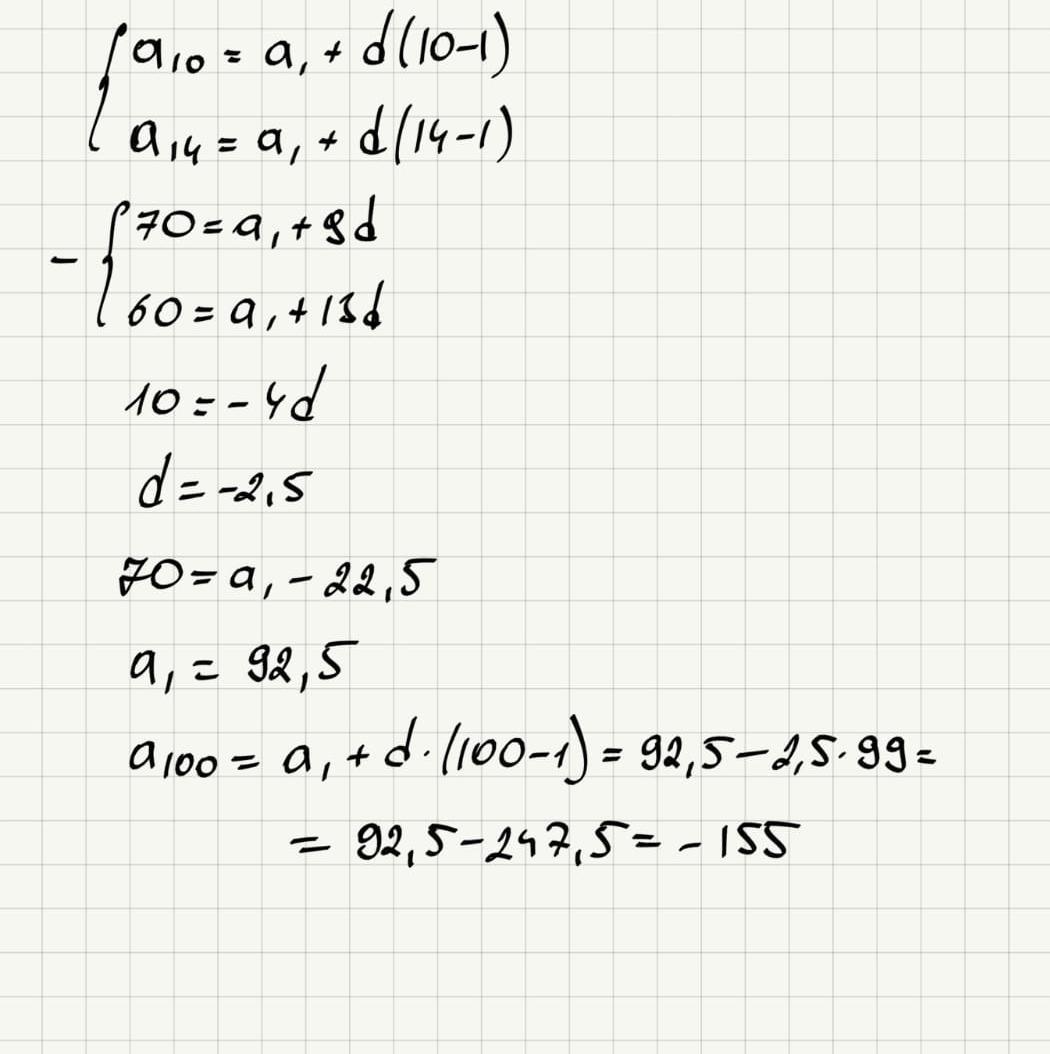 a₁₀ = a₁ + d(10-1)
a₁₄ = a₁ + d(14-1)
- 70 = a₁ + 9d
60 = a₁ + 13d
10 = - 4d
d = -2,5
70 = a₁ - 22,5
a₁ = 92,5
a₁₀₀ = a₁ + d·(100-1) = 92,5 - 2,5·99 =
= 92,5 - 247,5 = - 155